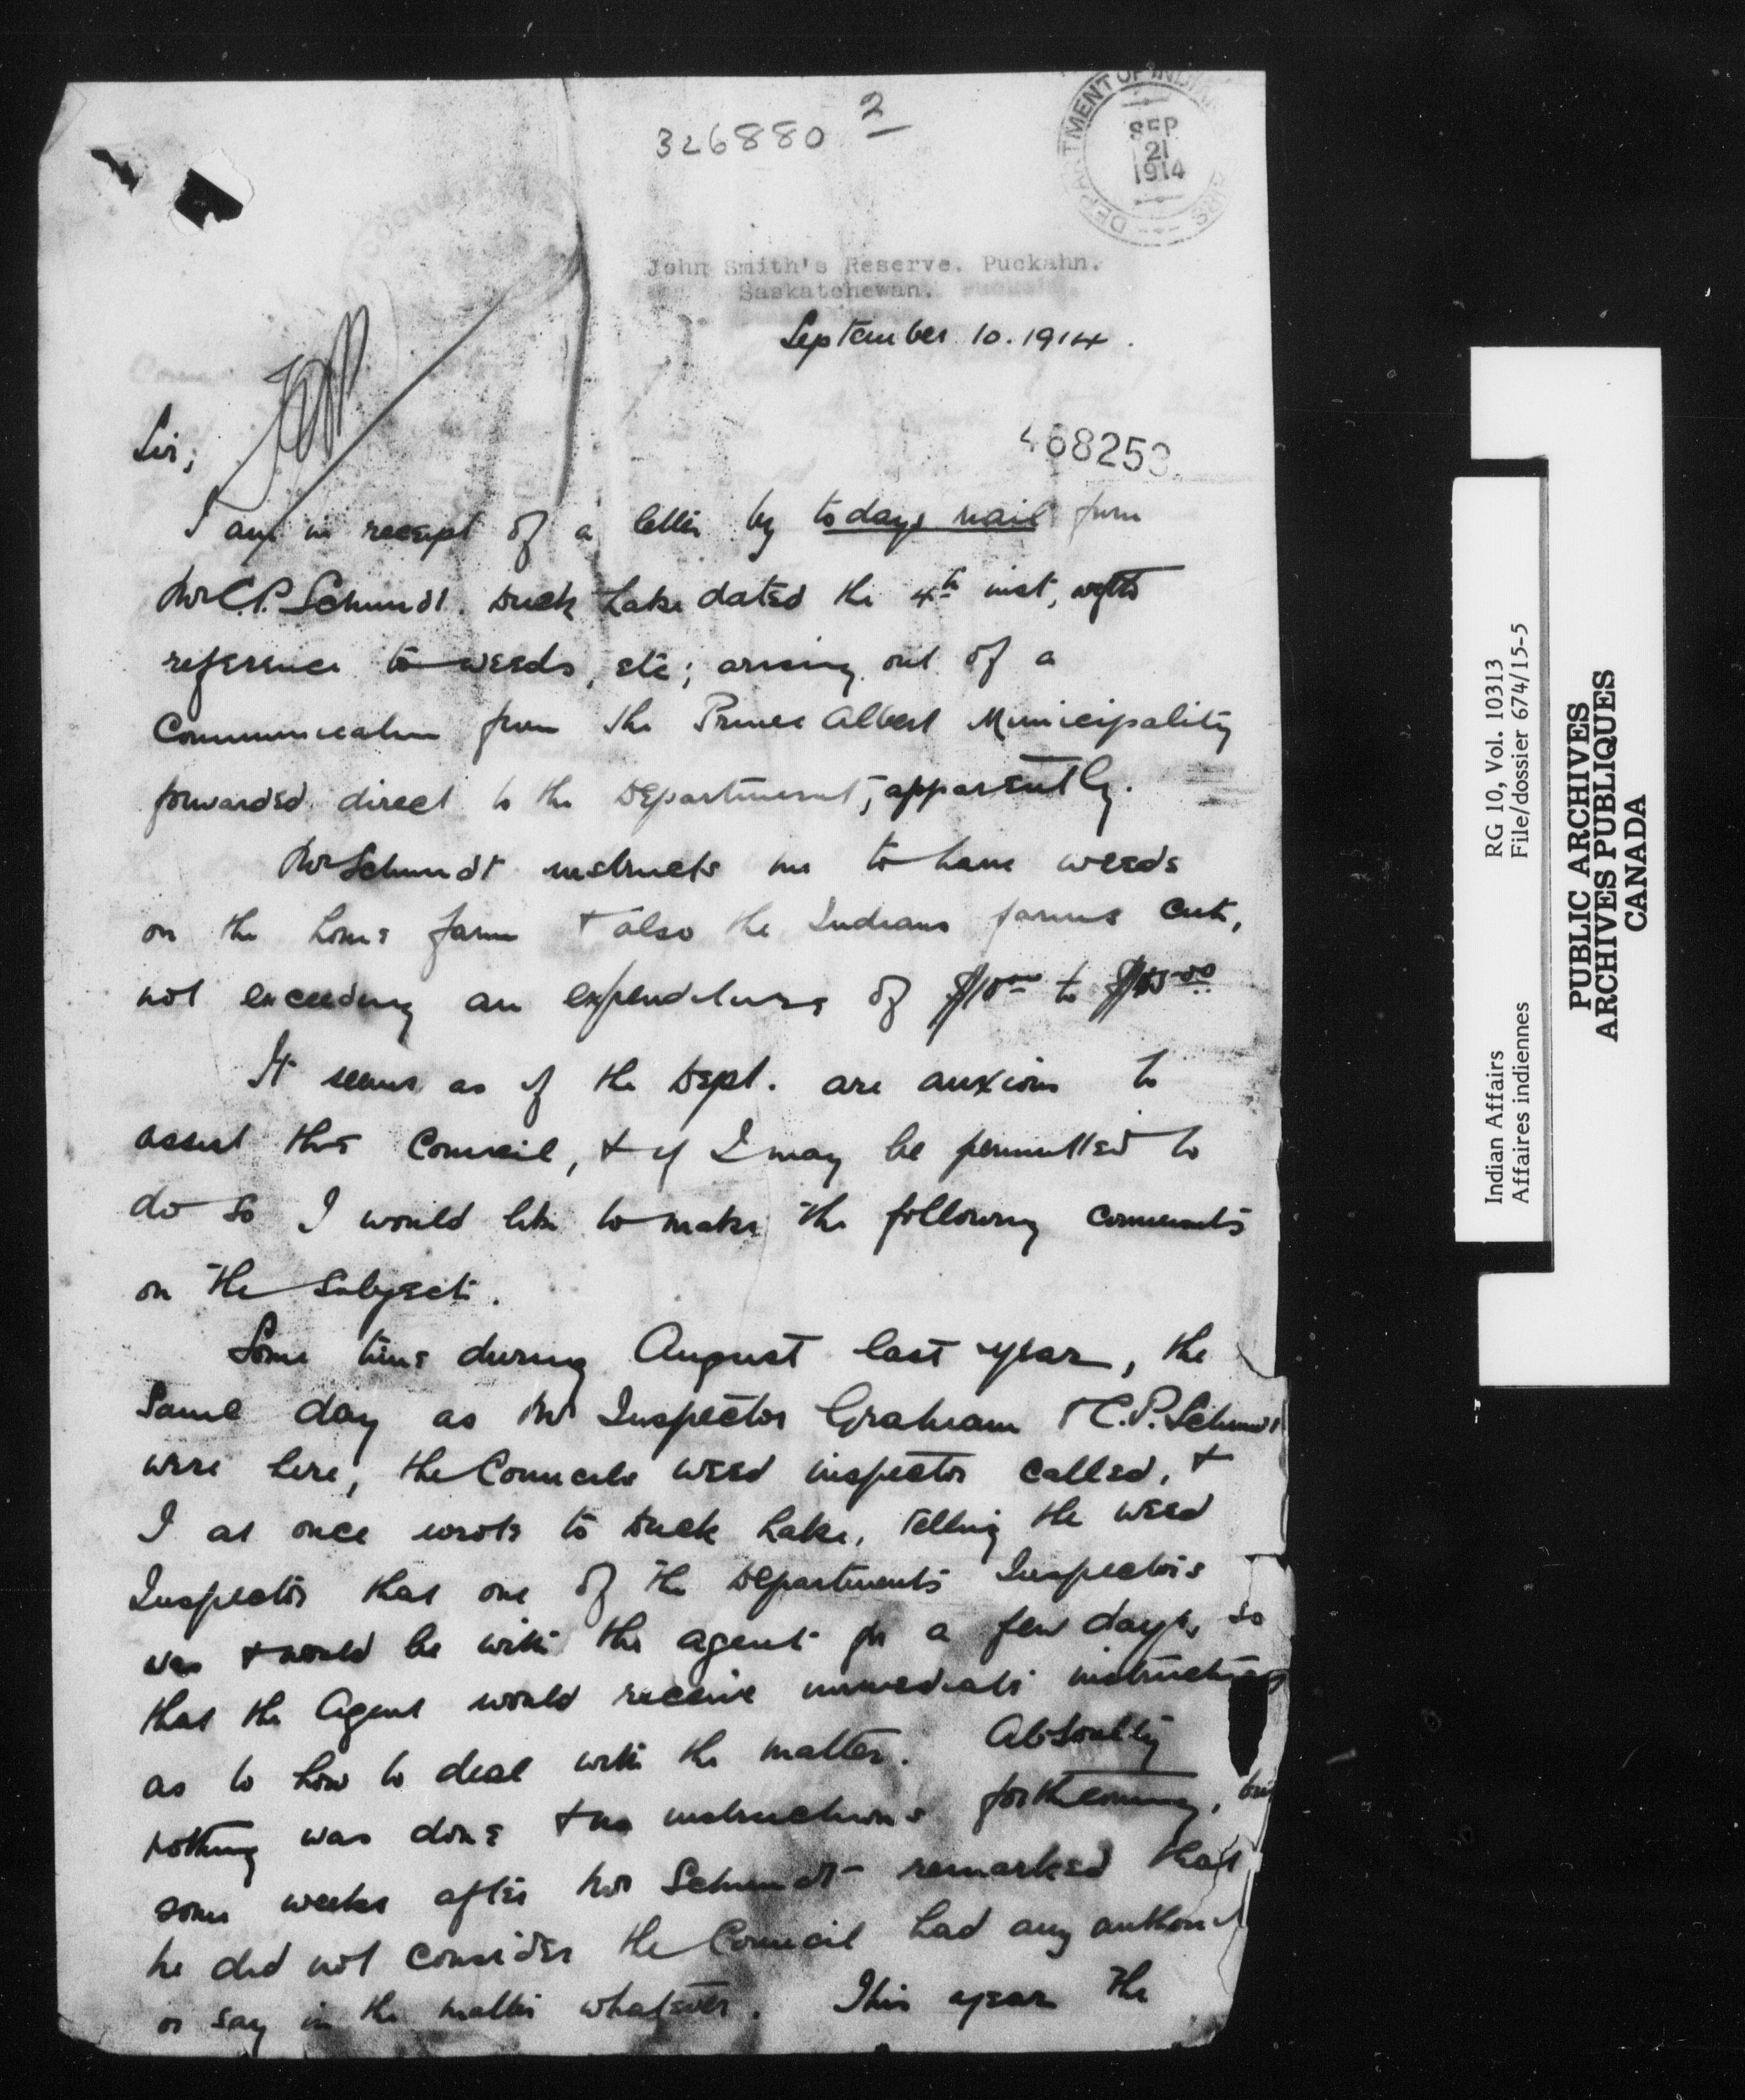 326880 2
DEPARTMENT OF INDIAN AFFAIRS
SEP
21
1914
John Smith's Reserve. Puckahn.
Saskatchewan.
September 10. 1914.
468253
Sir;
I am in receipt of a letter by todays mail from
Mr C.P. Schmidt. Duck Lake dated the 4th inst, with
reference to weeds, etc; arising out of a
Communication from the Prince Albert Municipality
forwarded direct to the Department, apparently.
Mr Schmidt instructs me to have weeds
on the home farm & also the Indians farms cut,
not exceeding an expenditure of $10.00 to
It seems as if the Dept. are anxious to
assist this Council, & if I may be permitted to
do so I would like to make the following comments
on the subject.
Some time during August last year, the
same day as Mr Inspector Graham & C.P. Schmidt
were here, the Councils weed inspector called, &
I at once wrote to Duck Lake, telling the weed
Inspector that one of the Departments Inspectors
was & would be with the agent for a few days, so
that the Agent would receive immediate instructions
as to how to deal with the matter. Absolutely
nothing was done & no instructions forthcoming, but
some weeks after Mr Schmidt remarked that
he did not consider the Council had any authority
or say in the matter whatever. This year the
Indian Affairs RG 10, Vol. 10313
Affaires indiennes File/dossier 674/15-5
PUBLIC ARCHIVES
ARCHIVES PUBLIQUES
CANADA